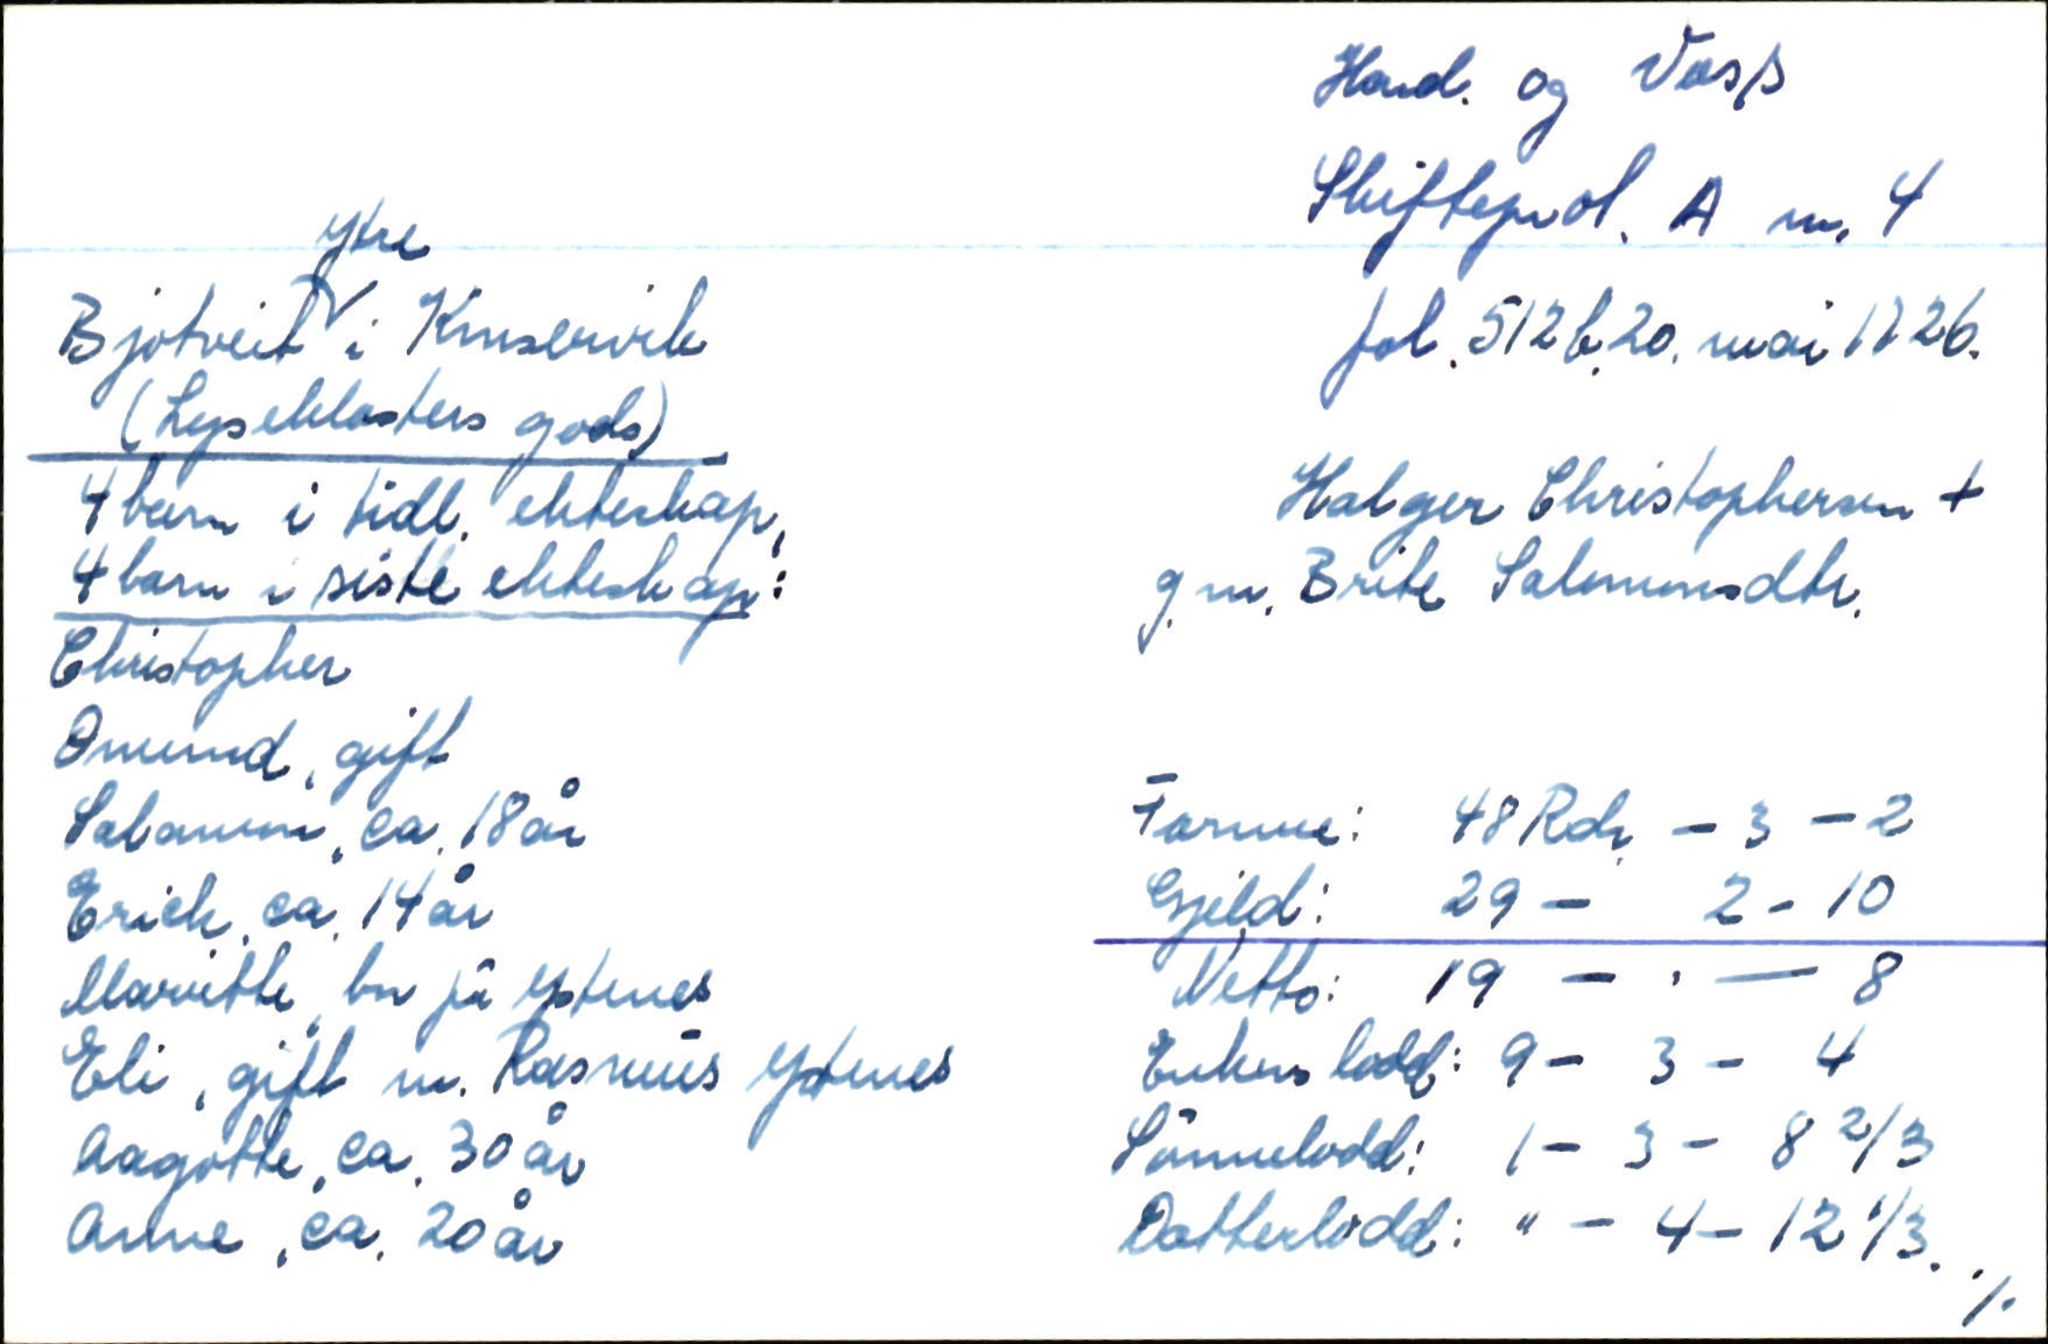 Hard. og Voss
Skifteprot. A nr. 4
fol. 512b, 20. mai 1726.
ytre
Bjotveit i Kinservik
(Lyseklosters gods)
4 barn i tidl. ekteskap,
4 barn i siste ekteskap:
Christopher
Omund, gift
Salamon, ca. 18 år
Erich, ca. 14 år
Maritthe, bor på Ystenes
Eli, gift m. Rasmus Ystenes
Aagotte, ca. 30 år
Anne, ca. 20 år
Halger Christophersen +
g.m. Brite Salomonsdtr.
Formue: 48 Rdr. - 3 - 2
Gjeld: 29 - 2 - 10
Netto: 19 - " - 8
Enkens lodd: 9 - 3 - 4
Sønnelodd: 1 - 3 - 8 2/3
Datterlodd: " - 4 - 12 1/3.
./.